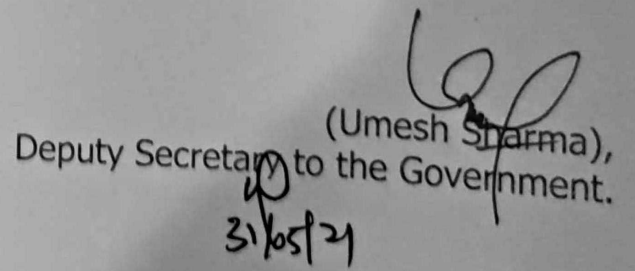 (Umesh Sharma),
Deputy Secretary to the Government.
31/05/21